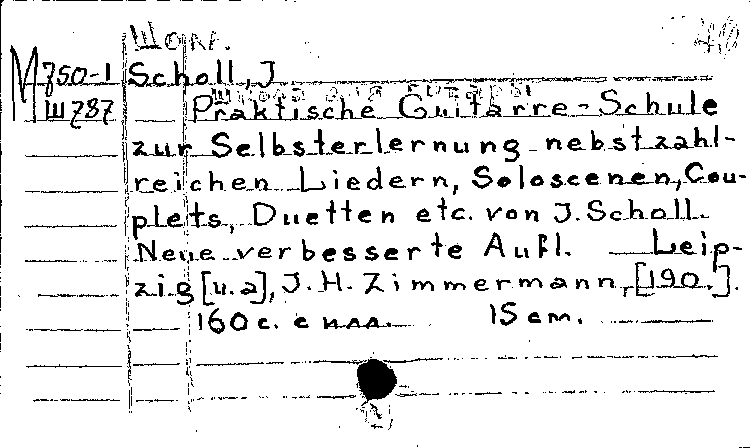 Шолл.
40
М 750-1 Scholl, J
Ш 787 Praktische Guitarre-Schule
zur Selbsterlernung nebst zahl-
reichen Liedern, Soloscenen, Cou-
plets, Duetten etc. von J. Scholl.
Neue verbesserte Aufl. Leip-
zig [u.a], J. H. Zimmermann, [190.].
160 с. с илл. 15 cm.